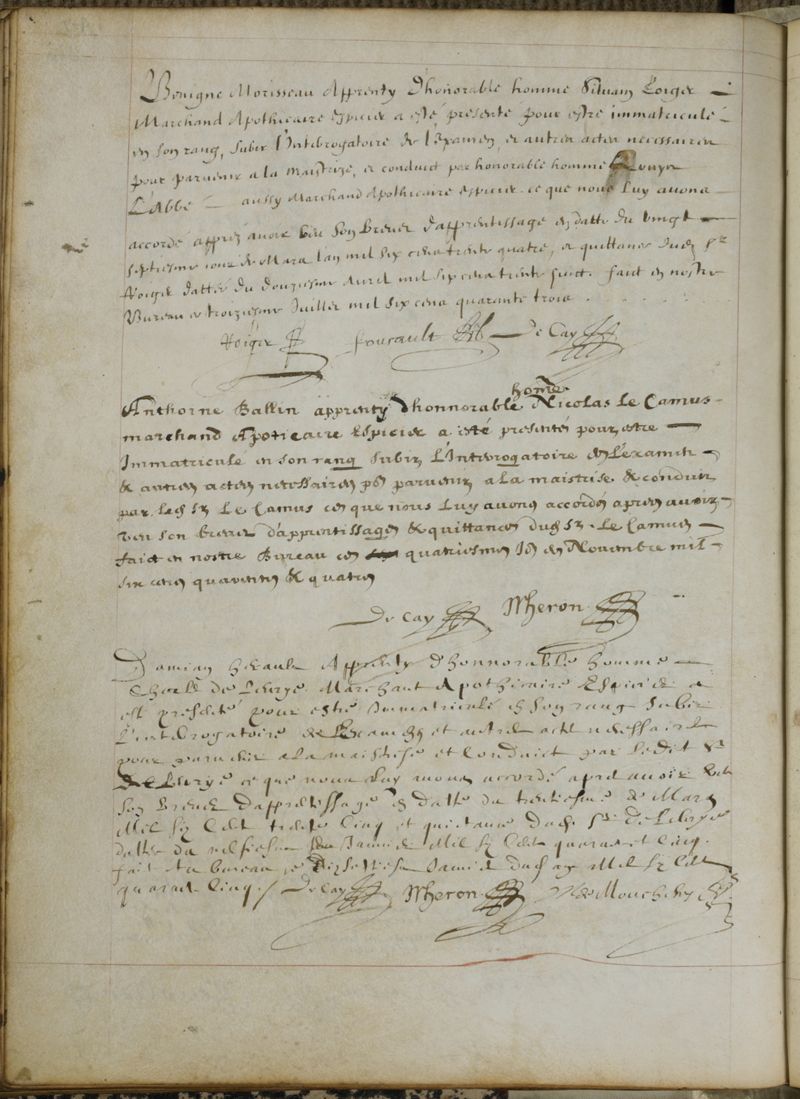 Benigne Morisseau Apprenty d'honorable homme Silvain
Marchand Apothicaire espicier a esté presenté pour estre immatriculé
en son rang, subir l'Intérogatoire de l'examen, et autres actes necessaires
pour parvenir a la maistrise, et conduict par honorable homme
L'Abbé aussy Marchand Apothicaire espicier. ce que nous luy avons
accordé apprez avoir veu son Brevet d'apprentissage en datte du vingt
septiesme jour de Mars l'an mil six cens trente quatre, et quittance dud. Sr
datté du douziesme Avril mil six cens trente. faict en nostre
Bureau ce troiziesme Juillet mil six cens quarante trois
foucault De Cay
homme
Anthoine Ballin apprenty d'honnorable Nicolas Le Camus
marchand Apoticaire Espicier a esté presenté pour estre
Immatriculé en son rang subir L'Interogatoire de L'examen
& autres actes necessaires pr parvenir a la maistrise & conduit
par led Sr Le Camus ce que nous Luy avons accordé apres avoir
veu son brevet d'apprentissage & quittance dud Sr Le Camus
faict en nostre Bureau ce quatriesme de Novembre mil
six cens quarente & quatre
De Cay Mheron
Damian Apprenty d'honnorable homme
Charle de Marchant Apothicaire Espicier a
est presenté pour estre immatriculé en son rang subir
L'interrogatoire de L'examen et autre acte nessaire
pour parvenir a la maistrise et conduict par ledit Sr
ce que nous luy avons accordé apres avoir veu
son brevet d'apprentissage en datte du trentiesme de Mars
Mil six cent trente cinq et quitance dudi Sr
datté du Janvier Mil six cent quarante cinq.
fait au bureau ce dixsettiesme Janvier Mil six cent
quarante cinq. De Cay Mheron